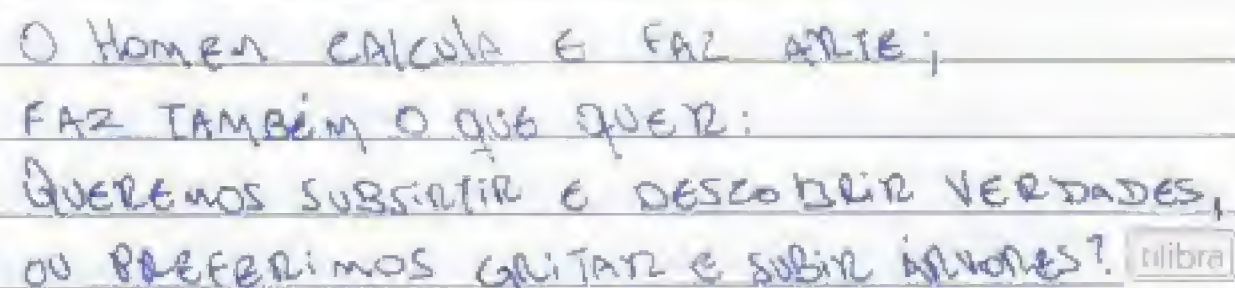 O HOMEM CALCULA E FAZ ARTE;
FAZ TAMBÉM O QUE QUER:
QUEREMOS SUBSISTIR E DESCOBRIR VERDADES,
OU PREFERIMOS GRITAR E SUBIR ÁRVORES? tilibra